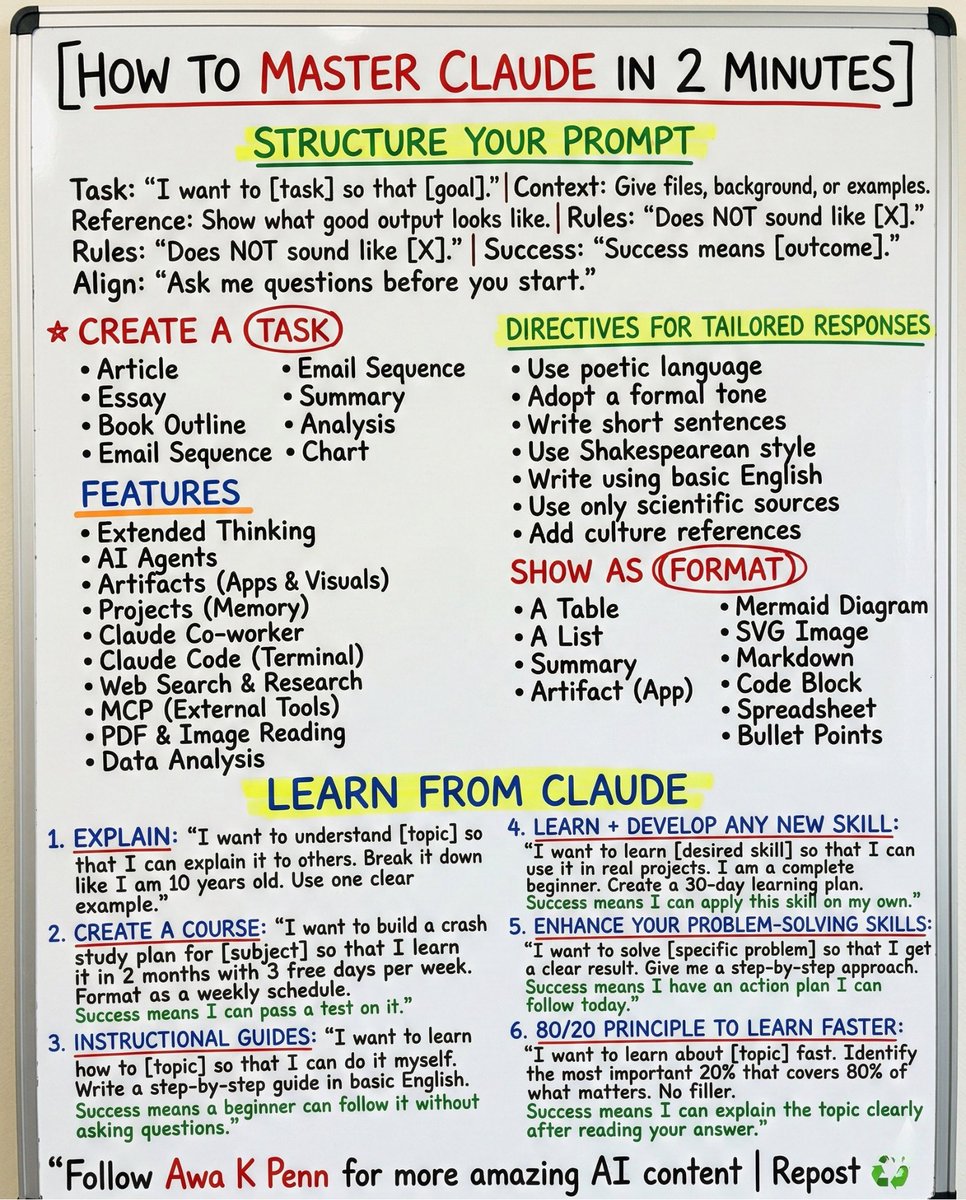 [HOW TO MASTER CLAUDE IN 2 MINUTES]
STRUCTURE YOUR PROMPT
Task: “I want to [task] so that [goal].” | Context: Give files, background, or examples.
Reference: Show what good output looks like. | Rules: “Does NOT sound like [X].”
Rules: “Does NOT sound like [X].” | Success: “Success means [outcome].”
Align: “Ask me questions before you start.”
☆ CREATE A TASK
• Article
• Essay
• Book Outline
• Email Sequence
• Email Sequence
• Summary
• Analysis
• Chart
FEATURES
• Extended Thinking
• AI Agents
• Artifacts (Apps & Visuals)
• Projects (Memory)
• Claude Co-worker
• Claude Code (Terminal)
• Web Search & Research
• MCP (External Tools)
• PDF & Image Reading
• Data Analysis
DIRECTIVES FOR TAILORED RESPONSES
• Use poetic language
• Adopt a formal tone
• Write short sentences
• Use Shakespearean style
• Write using basic English
• Use only scientific sources
• Add culture references
SHOW AS (FORMAT)
• A Table
• A List
• Summary
• Artifact (App)
• Mermaid Diagram
• SVG Image
• Markdown
• Code Block
• Spreadsheet
• Bullet Points
LEARN FROM CLAUDE
1. EXPLAIN: “I want to understand [topic] so
that I can explain it to others. Break it down
like I am 10 years old. Use one clear
example.”
2. CREATE A COURSE: “I want to build a crash
study plan for [subject] so that I learn
it in 2 months with 3 free days per week.
Format as a weekly schedule.
Success means I can pass a test on it.”
3. INSTRUCTIONAL GUIDES: “I want to learn
how to [topic] so that I can do it myself.
Write a step-by-step guide in basic English.
Success means a beginner can follow it without
asking questions.”
4. LEARN + DEVELOP ANY NEW SKILL:
“I want to learn [desired skill] so that I can
use it in real projects. I am a complete
beginner. Create a 30-day learning plan.
Success means I can apply this skill on my own.”
5. ENHANCE YOUR PROBLEM-SOLVING SKILLS:
“I want to solve [specific problem] so that I get
a clear result. Give me a step-by-step approach.
Success means I have an action plan I can
follow today.”
6. 80/20 PRINCIPLE TO LEARN FASTER:
“I want to learn about [topic] fast. Identify
the most important 20% that covers 80% of
what matters. No filler.
Success means I can explain the topic clearly
after reading your answer.”
“Follow Awa K Penn for more amazing AI content | Repost